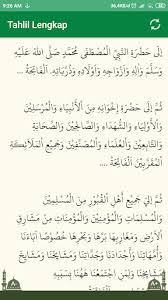 9:26 AM
34,4KB/d
Tahlil Lengkap
إِلَى حَضْرَةِ النَّبِيِّ الْمُصْطَفَى مُحَمَّدٍ صَلَّى اللهُ عَلَيْهِ
وَسَلَّمَ وَآلِهِ وَأَزْوَاجِهِ وَأَوْلَادِهِ وَذُرِّيَّاتِهِ. الْفَاتِحَةُ ...
ثُمَّ إِلَى حَضْرَةِ إِخْوَانِهِ مِنَ الْأَنْبِيَاءِ وَالْمُرْسَلِيْنَ
وَالْأَوْلِيَاءِ وَالشُّهَدَاءِ وَالصَّالِحِيْنَ وَالصَّحَابَةِ
وَالتَّابِعِيْنَ وَالْعُلَمَاءِ وَالْمُصَنِّفِيْنَ وَجَمِيْعِ الْمَلَائِكَةِ
الْمُقَرَّبِيْنَ. الْفَاتِحَةُ ...
ثُمَّ إِلَى جَمِيْعِ أَهْلِ الْقُبُوْرِ مِنَ الْمُسْلِمِيْنَ
وَالْمُسْلِمَاتِ وَالْمُؤْمِنِيْنَ وَالْمُؤْمِنَاتِ مِنْ مَشَارِقِ
الْأَرْضِ وَمَغَارِبِهَا بَرِّهَا وَبَحْرِهَا خُصُوْصًا آبَاءَنَا
وَأُمَّهَاتِنَا وَأَجْدَادَنَا وَجَدَّاتِنَا وَمَشَايِخَنَا
وَأَسَاتِذَتَنَا وَلِمَنِ اجْتَمَعْنَا هٰهُنَا بِسَبَبِهِ